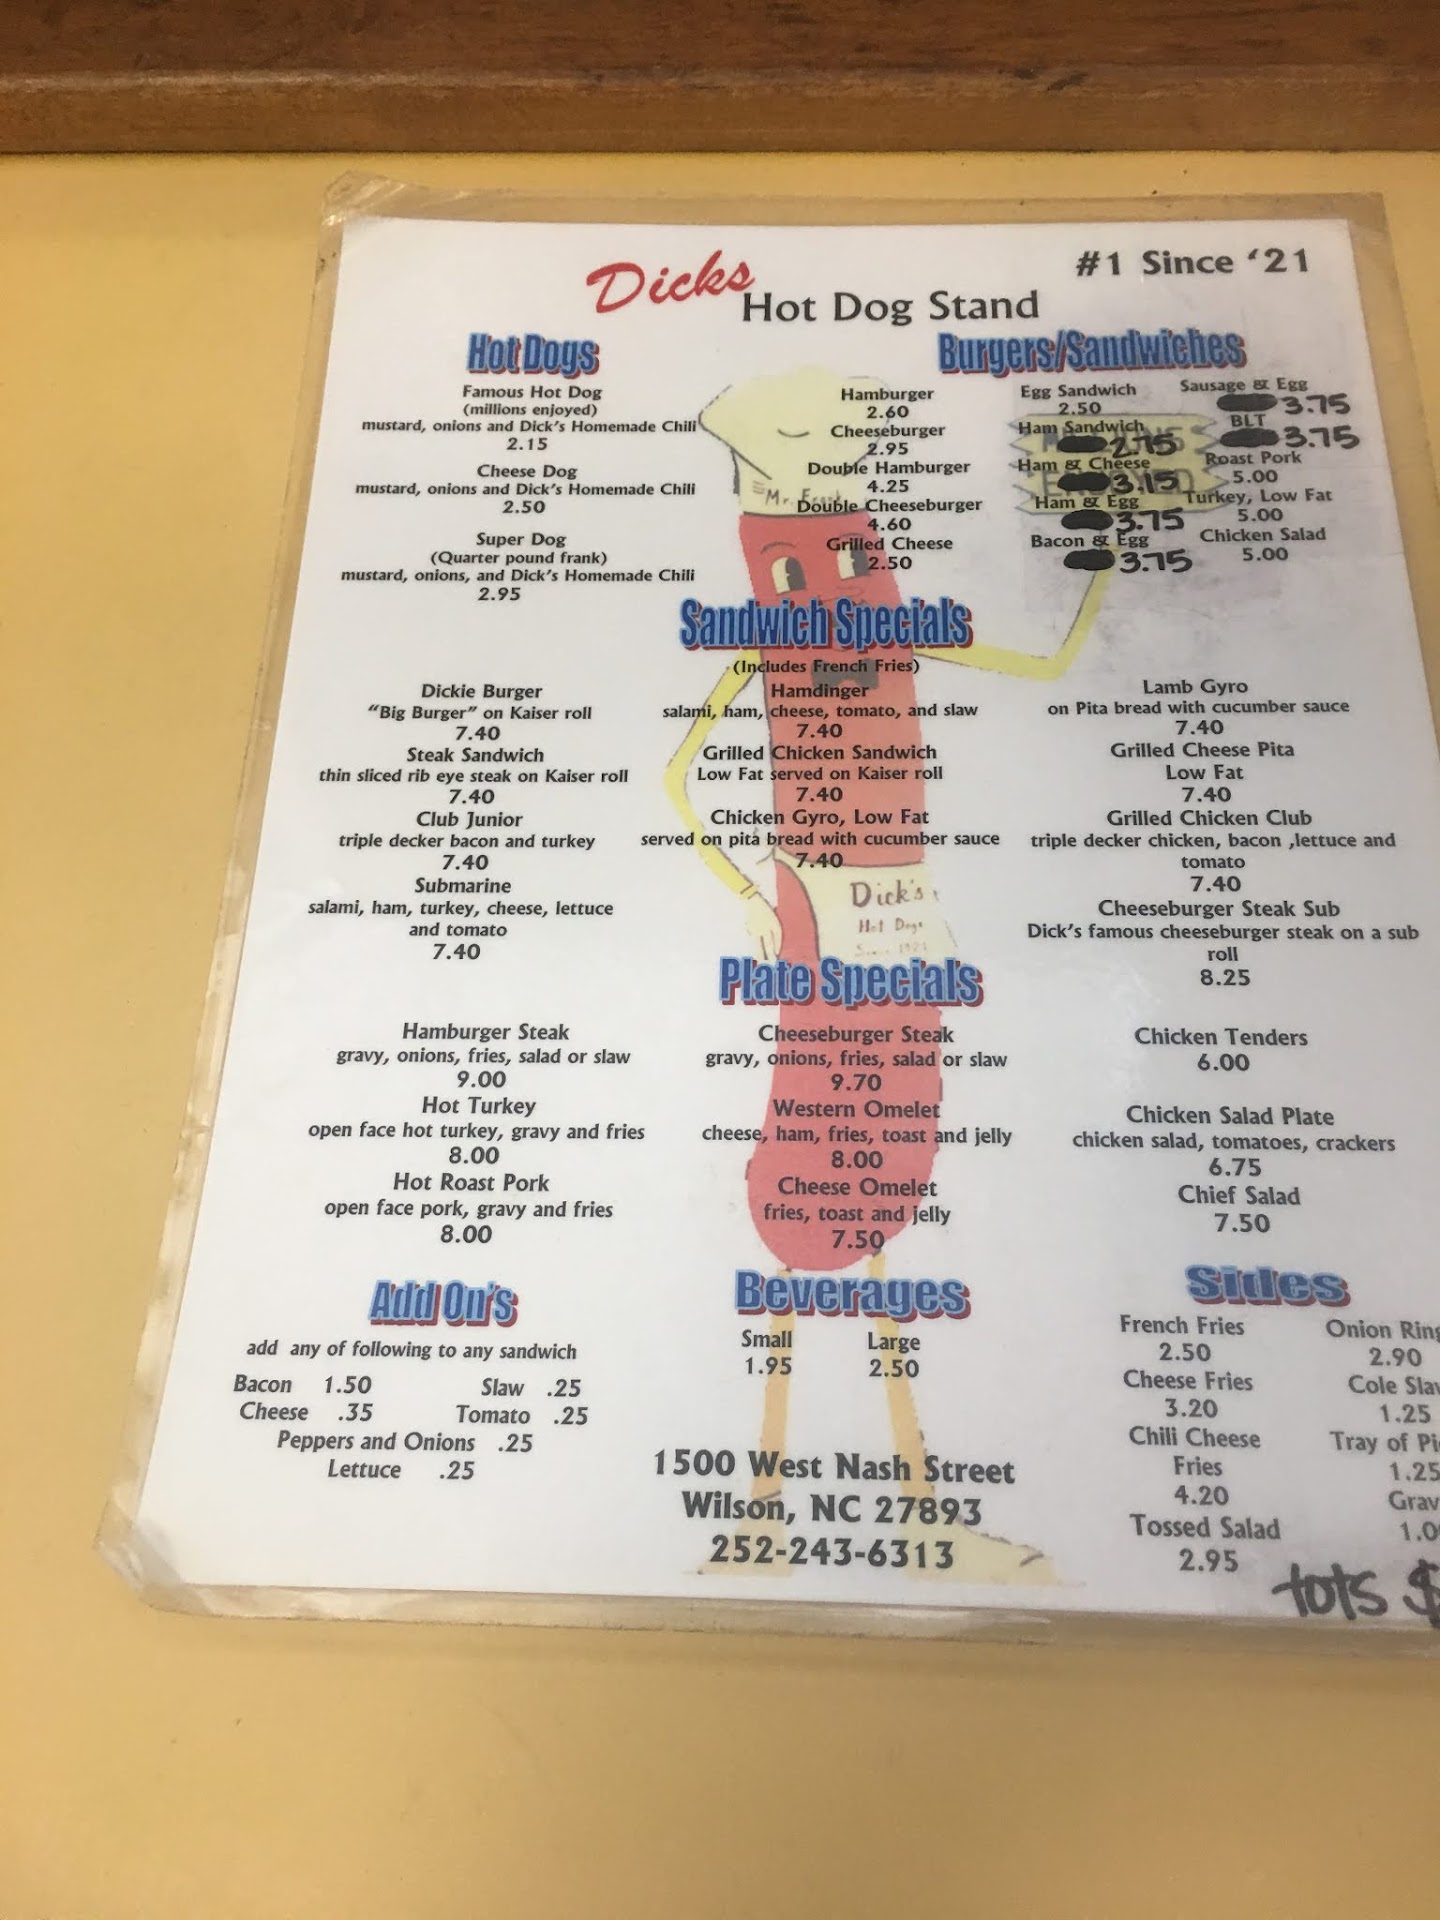 Dicks
Hot Dog Stand
#1 Since ‘21
Hot Dogs
Famous Hot Dog
(millions enjoyed)
mustard, onions and Dick’s Homemade Chili
2.15
Cheese Dog
mustard, onions and Dick’s Homemade Chili
2.50
Super Dog
(Quarter pound frank)
mustard, onions, and Dick’s Homemade Chili
2.95
Burgers/Sandwiches
Hamburger
2.60
Cheeseburger
2.95
Double Hamburger
4.25
Double Cheeseburger
4.60
Grilled Cheese
2.50
Egg Sandwich
2.50
Ham Sandwich
2.75
Ham & Cheese
3.15
Ham & Egg
3.75
Bacon & Egg
3.75
Sausage & Egg
3.75
BLT
3.75
Roast Pork
5.00
Turkey, Low Fat
5.00
Chicken Salad
5.00
Mr. Frank
Sandwich Specials
(Includes French Fries)
Dickie Burger
“Big Burger” on Kaiser roll
7.40
Steak Sandwich
thin sliced rib eye steak on Kaiser roll
7.40
Club Junior
triple decker bacon and turkey
7.40
Submarine
salami, ham, turkey, cheese, lettuce
and tomato
7.40
Hamdinger
salami, ham, cheese, tomato, and slaw
7.40
Grilled Chicken Sandwich
Low Fat served on Kaiser roll
7.40
Chicken Gyro, Low Fat
served on pita bread with cucumber sauce
7.40
Lamb Gyro
on Pita bread with cucumber sauce
7.40
Grilled Cheese Pita
Low Fat
7.40
Grilled Chicken Club
triple decker chicken, bacon ,lettuce and
tomato
7.40
Cheeseburger Steak Sub
Dick’s famous cheeseburger steak on a sub
roll
8.25
Dick's
Hot Dogs
Since 1921
Plate Specials
Hamburger Steak
gravy, onions, fries, salad or slaw
9.00
Hot Turkey
open face hot turkey, gravy and fries
8.00
Hot Roast Pork
open face pork, gravy and fries
8.00
Cheeseburger Steak
gravy, onions, fries, salad or slaw
9.70
Western Omelet
cheese, ham, fries, toast and jelly
8.00
Cheese Omelet
fries, toast and jelly
7.50
Chicken Tenders
6.00
Chicken Salad Plate
chicken salad, tomatoes, crackers
6.75
Chief Salad
7.50
Add On’s
add any of following to any sandwich
Bacon 1.50 Slaw .25
Cheese .35 Tomato .25
Peppers and Onions .25
Lettuce .25
Beverages
Small Large
1.95 2.50
1500 West Nash Street
Wilson, NC 27893
252-243-6313
Sides
French Fries
2.50
Cheese Fries
3.20
Chili Cheese
Fries
4.20
Tossed Salad
2.95
Onion Ring
2.90
Cole Slaw
1.25
Tray of Pi
1.25
Grav
1.0
tots $